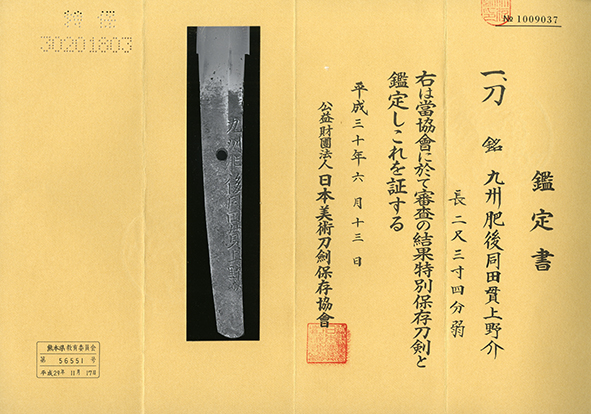 № 1009037
鑑定書
一、刀 銘 九州肥後同田貫上野介
長 二尺三寸四分弱
右は當協會に於て審査の結果特別保存刀剣と
鑑定しこれを証する
平成三十年六月十三日
公益財團法人 日本美術刀劍保存協會
30201803
熊本県教育委員会
第 56551 号
平成29年 11月 17日